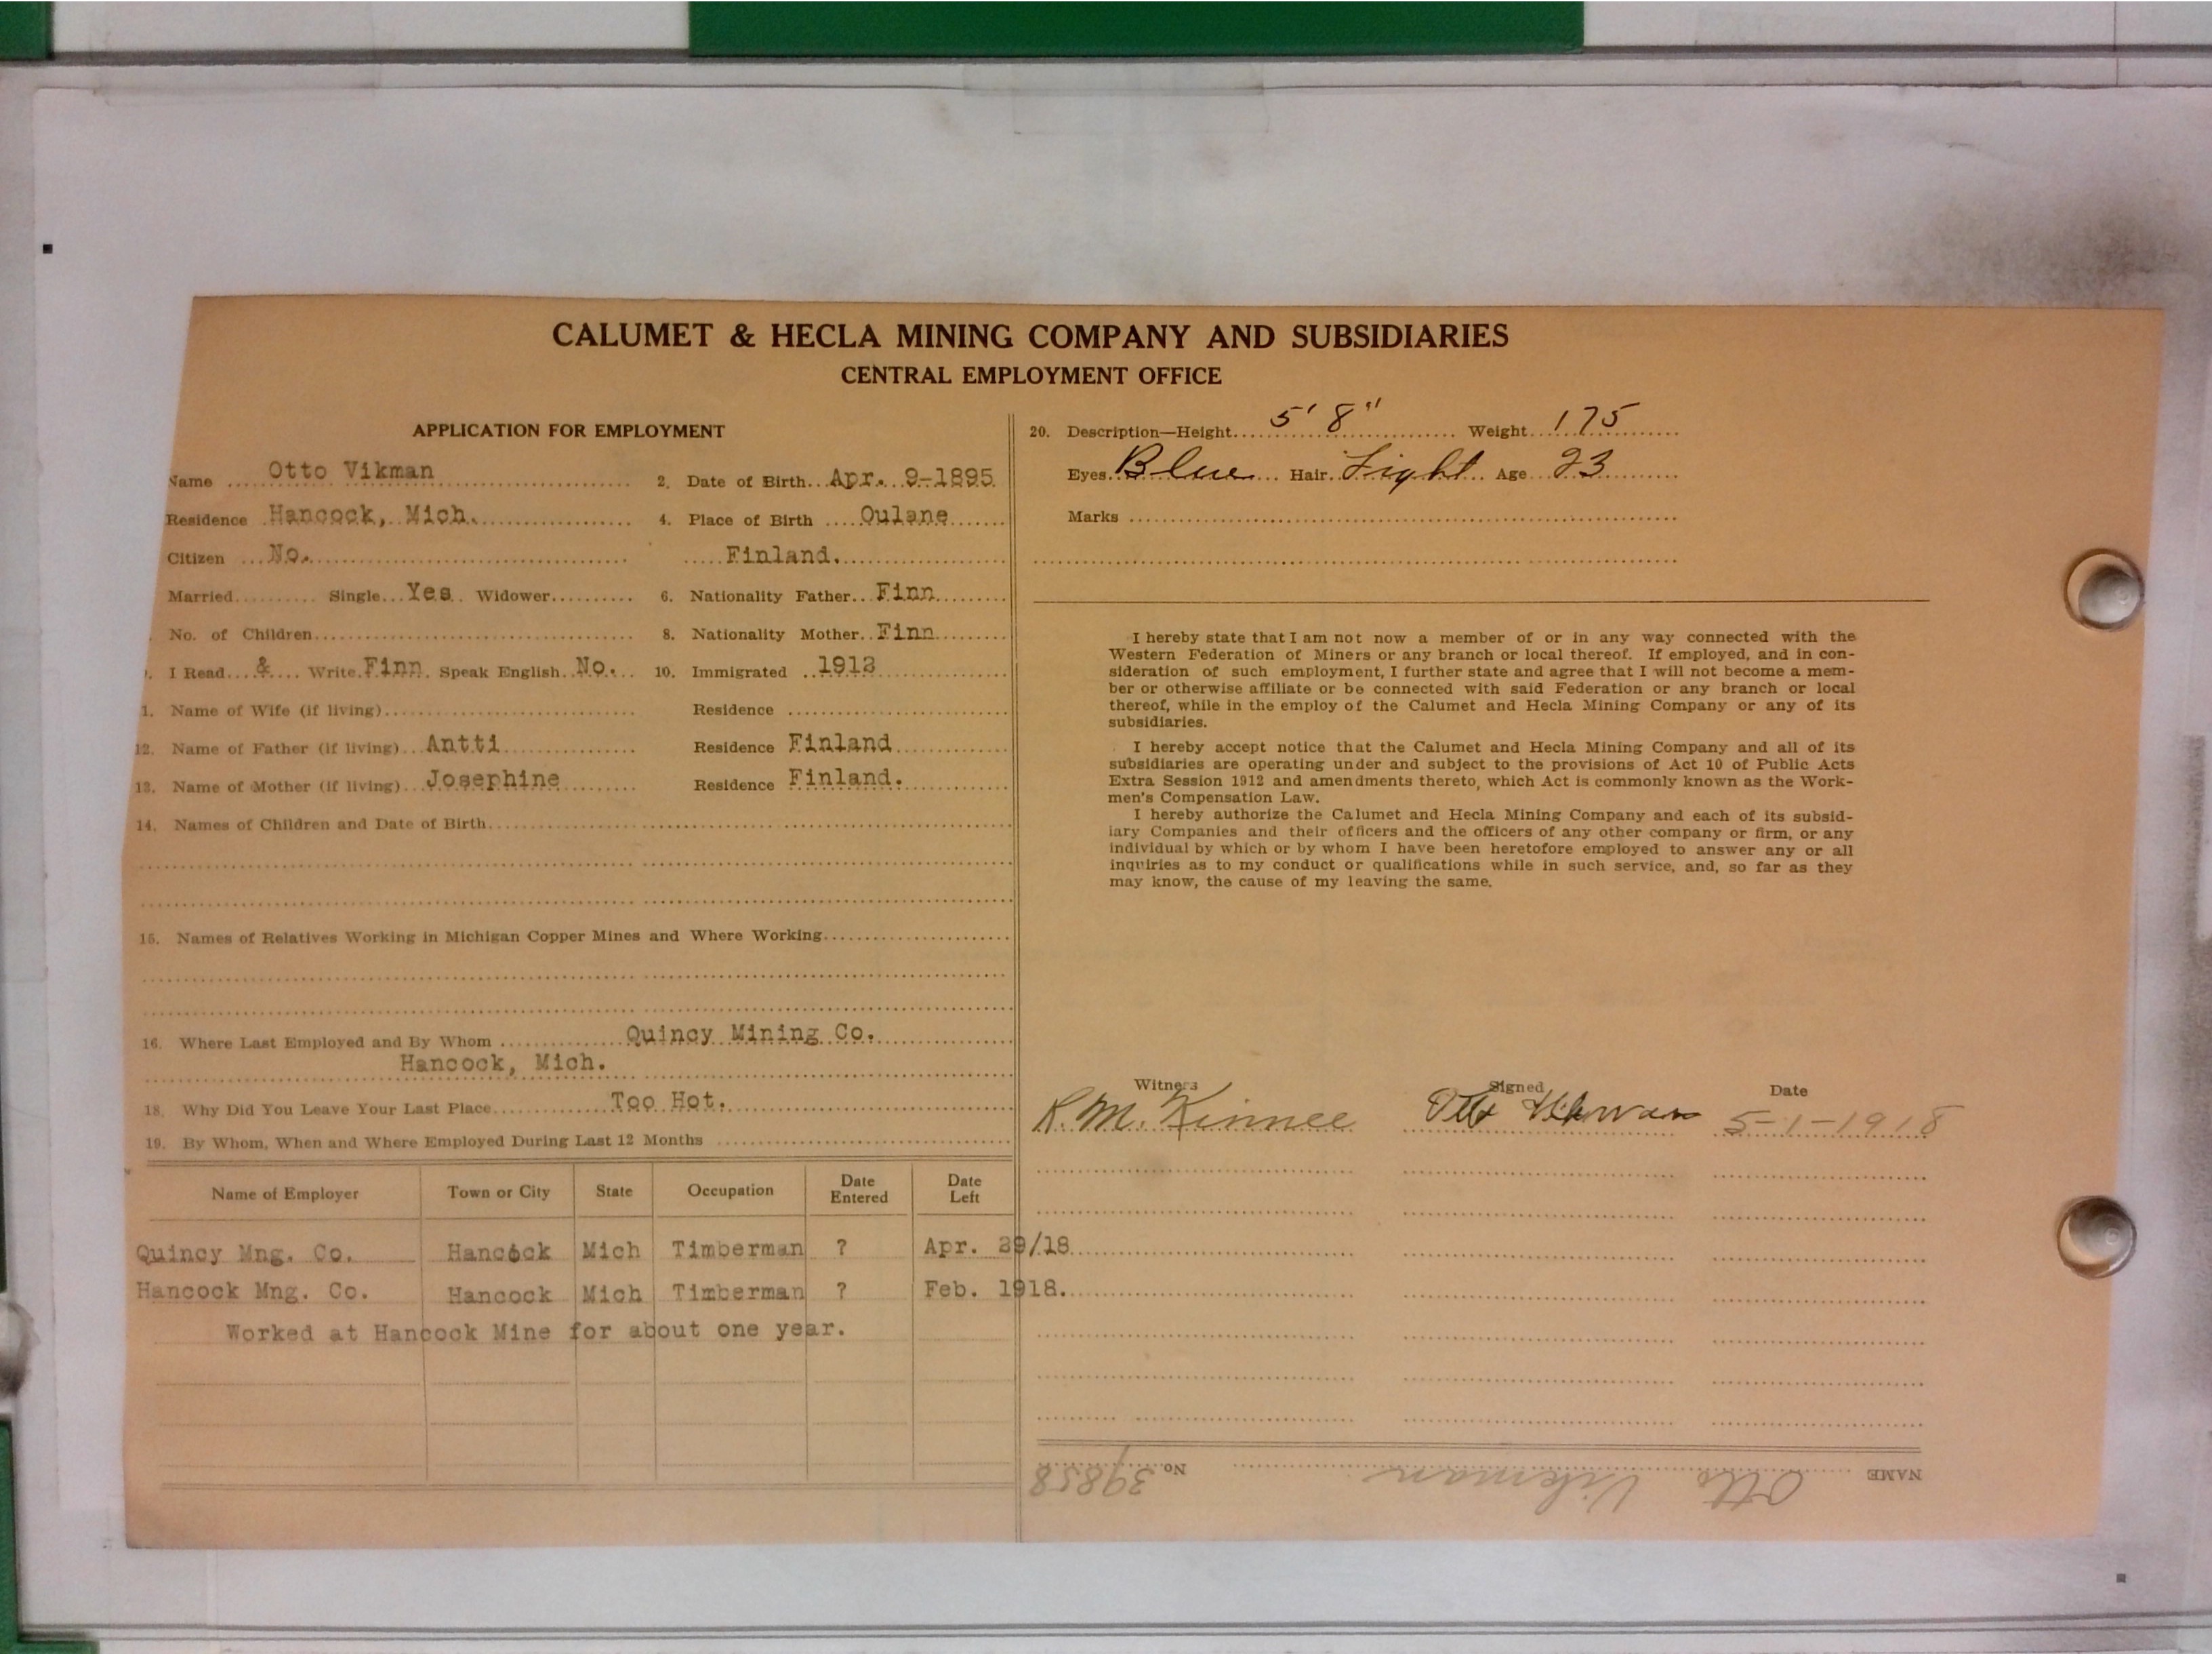 CALUMET & HECLA MINING COMPANY AND SUBSIDIARIES
CENTRAL EMPLOYMENT OFFICE
APPLICATION FOR EMPLOYMENT
Name Otto Vikman 2. Date of Birth Apr. 9-1895
Residence Hancock, Mich. 4. Place of Birth Oulane
Citizen No. Finland.
Married Single Yes Widower 6. Nationality Father Finn
No. of Children 8. Nationality Mother Finn
I Read & Write Finn Speak English No. 10. Immigrated 1913
1. Name of Wife (if living) Residence
12. Name of Father (if living) Antti Residence Finland
13. Name of Mother (if living) Josephine Residence Finland.
14. Names of Children and Date of Birth
15. Names of Relatives Working in Michigan Copper Mines and Where Working
16. Where Last Employed and By Whom Quincy Mining Co.
Hancock, Mich.
18. Why Did You Leave Your Last Place Too Hot.
19. By Whom, When and Where Employed During Last 12 Months
Name of Employer Town or City State Occupation Date Entered Date Left
Quincy Mng. Co. Hancock Mich Timberman ? Apr. 29/18
Hancock Mng. Co. Hancock Mich Timberman ? Feb. 1918.
Worked at Hancock Mine for about one year.
20. Description—Height 5' 8" Weight 175
Eyes Blue Hair Light Age 23
Marks
I hereby state that I am not now a member of or in any way connected with the
Western Federation of Miners or any branch or local thereof. If employed, and in con-
sideration of such employment, I further state and agree that I will not become a mem-
ber or otherwise affiliate or be connected with said Federation or any branch or local
thereof, while in the employ of the Calumet and Hecla Mining Company or any of its
subsidiaries.
I hereby accept notice that the Calumet and Hecla Mining Company and all of its
subsidiaries are operating under and subject to the provisions of Act 10 of Public Acts
Extra Session 1912 and amendments thereto, which Act is commonly known as the Work-
men's Compensation Law.
I hereby authorize the Calumet and Hecla Mining Company and each of its subsid-
iary Companies and their officers and the officers of any other company or firm, or any
individual by which or by whom I have been heretofore employed to answer any or all
inquiries as to my conduct or qualifications while in such service, and, so far as they
may know, the cause of my leaving the same.
Witness Signed Date
R. M. Kinnee Otto Vikman 5-1-1918
NAME Otto Vikman No. 39858